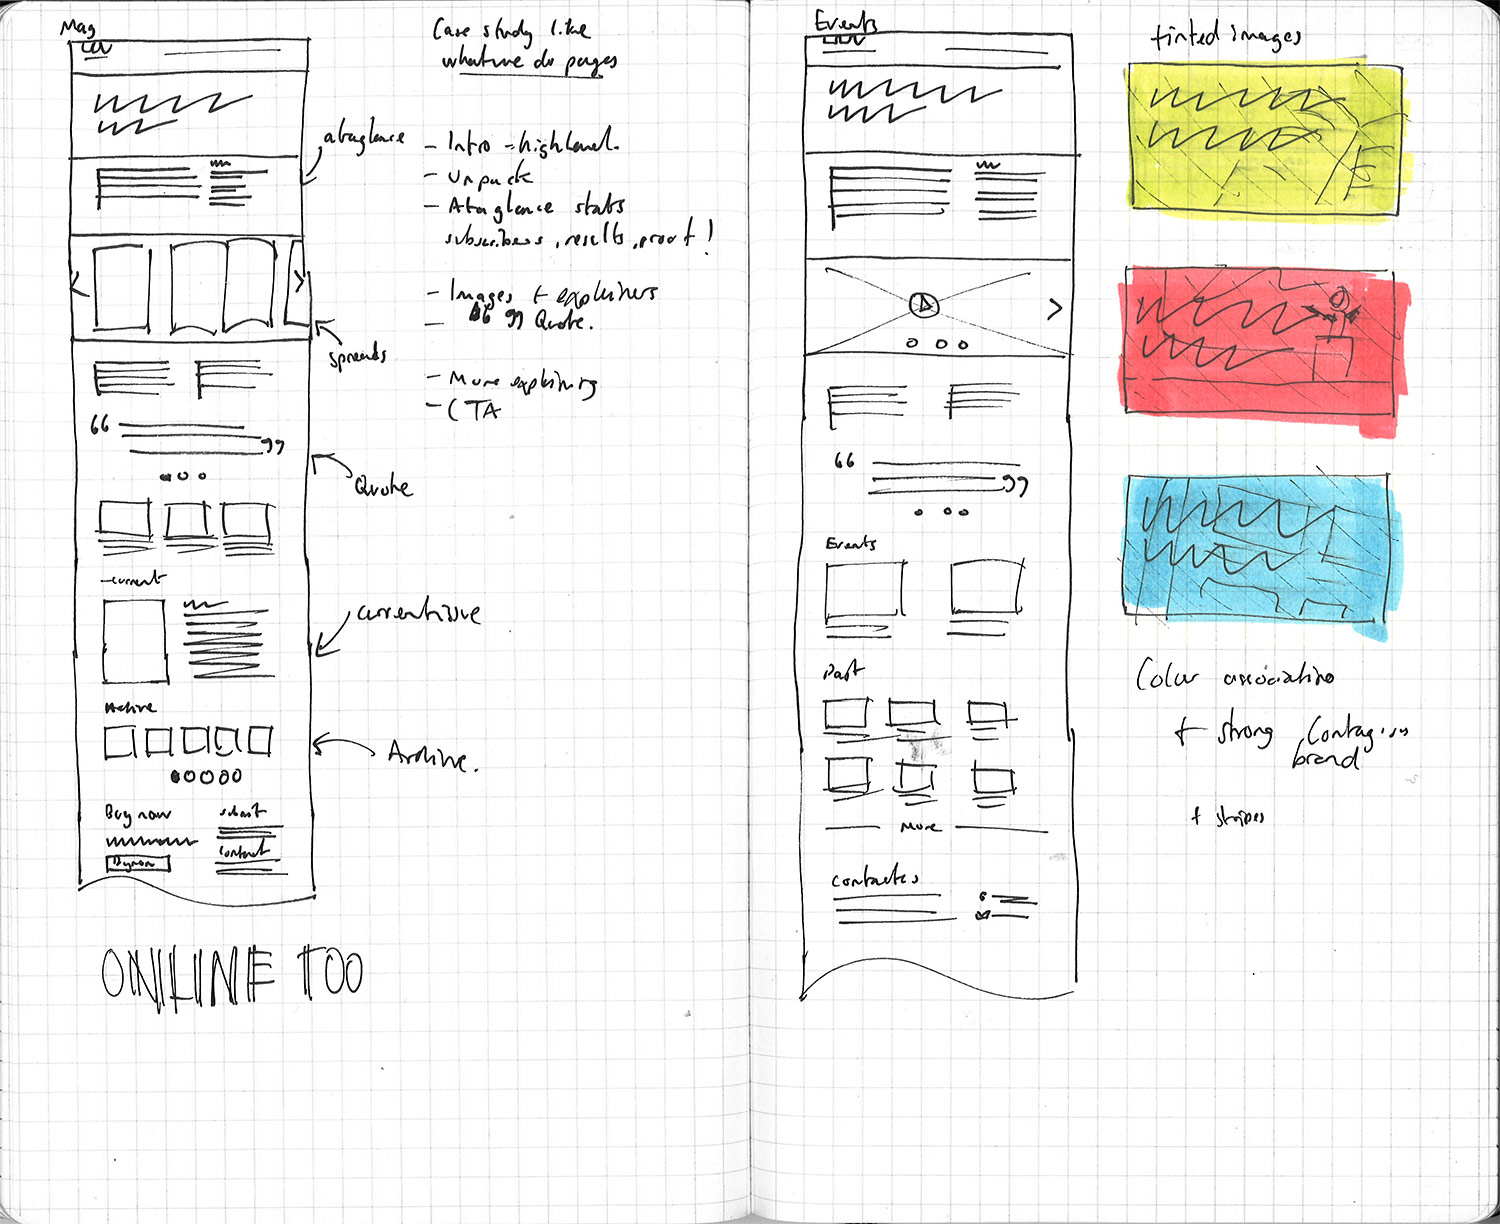 Mag
Case study like
what we do pages
at a glance
- Intro - high level.
- Unpack
- At a glance stats
subscribers, results, proof!
- Images + explainers
- “ ” Quote.
- More explaining
- CTA
spreads
“
”
Quote
current
current issue
Archive
Archive.
Buy now
submit
Contact
Buy now
ONLINE TOO
Events
“
”
Events
Past
More
Contacts
tinted images
Color association
+ strong Contagious
brand
+ stripes